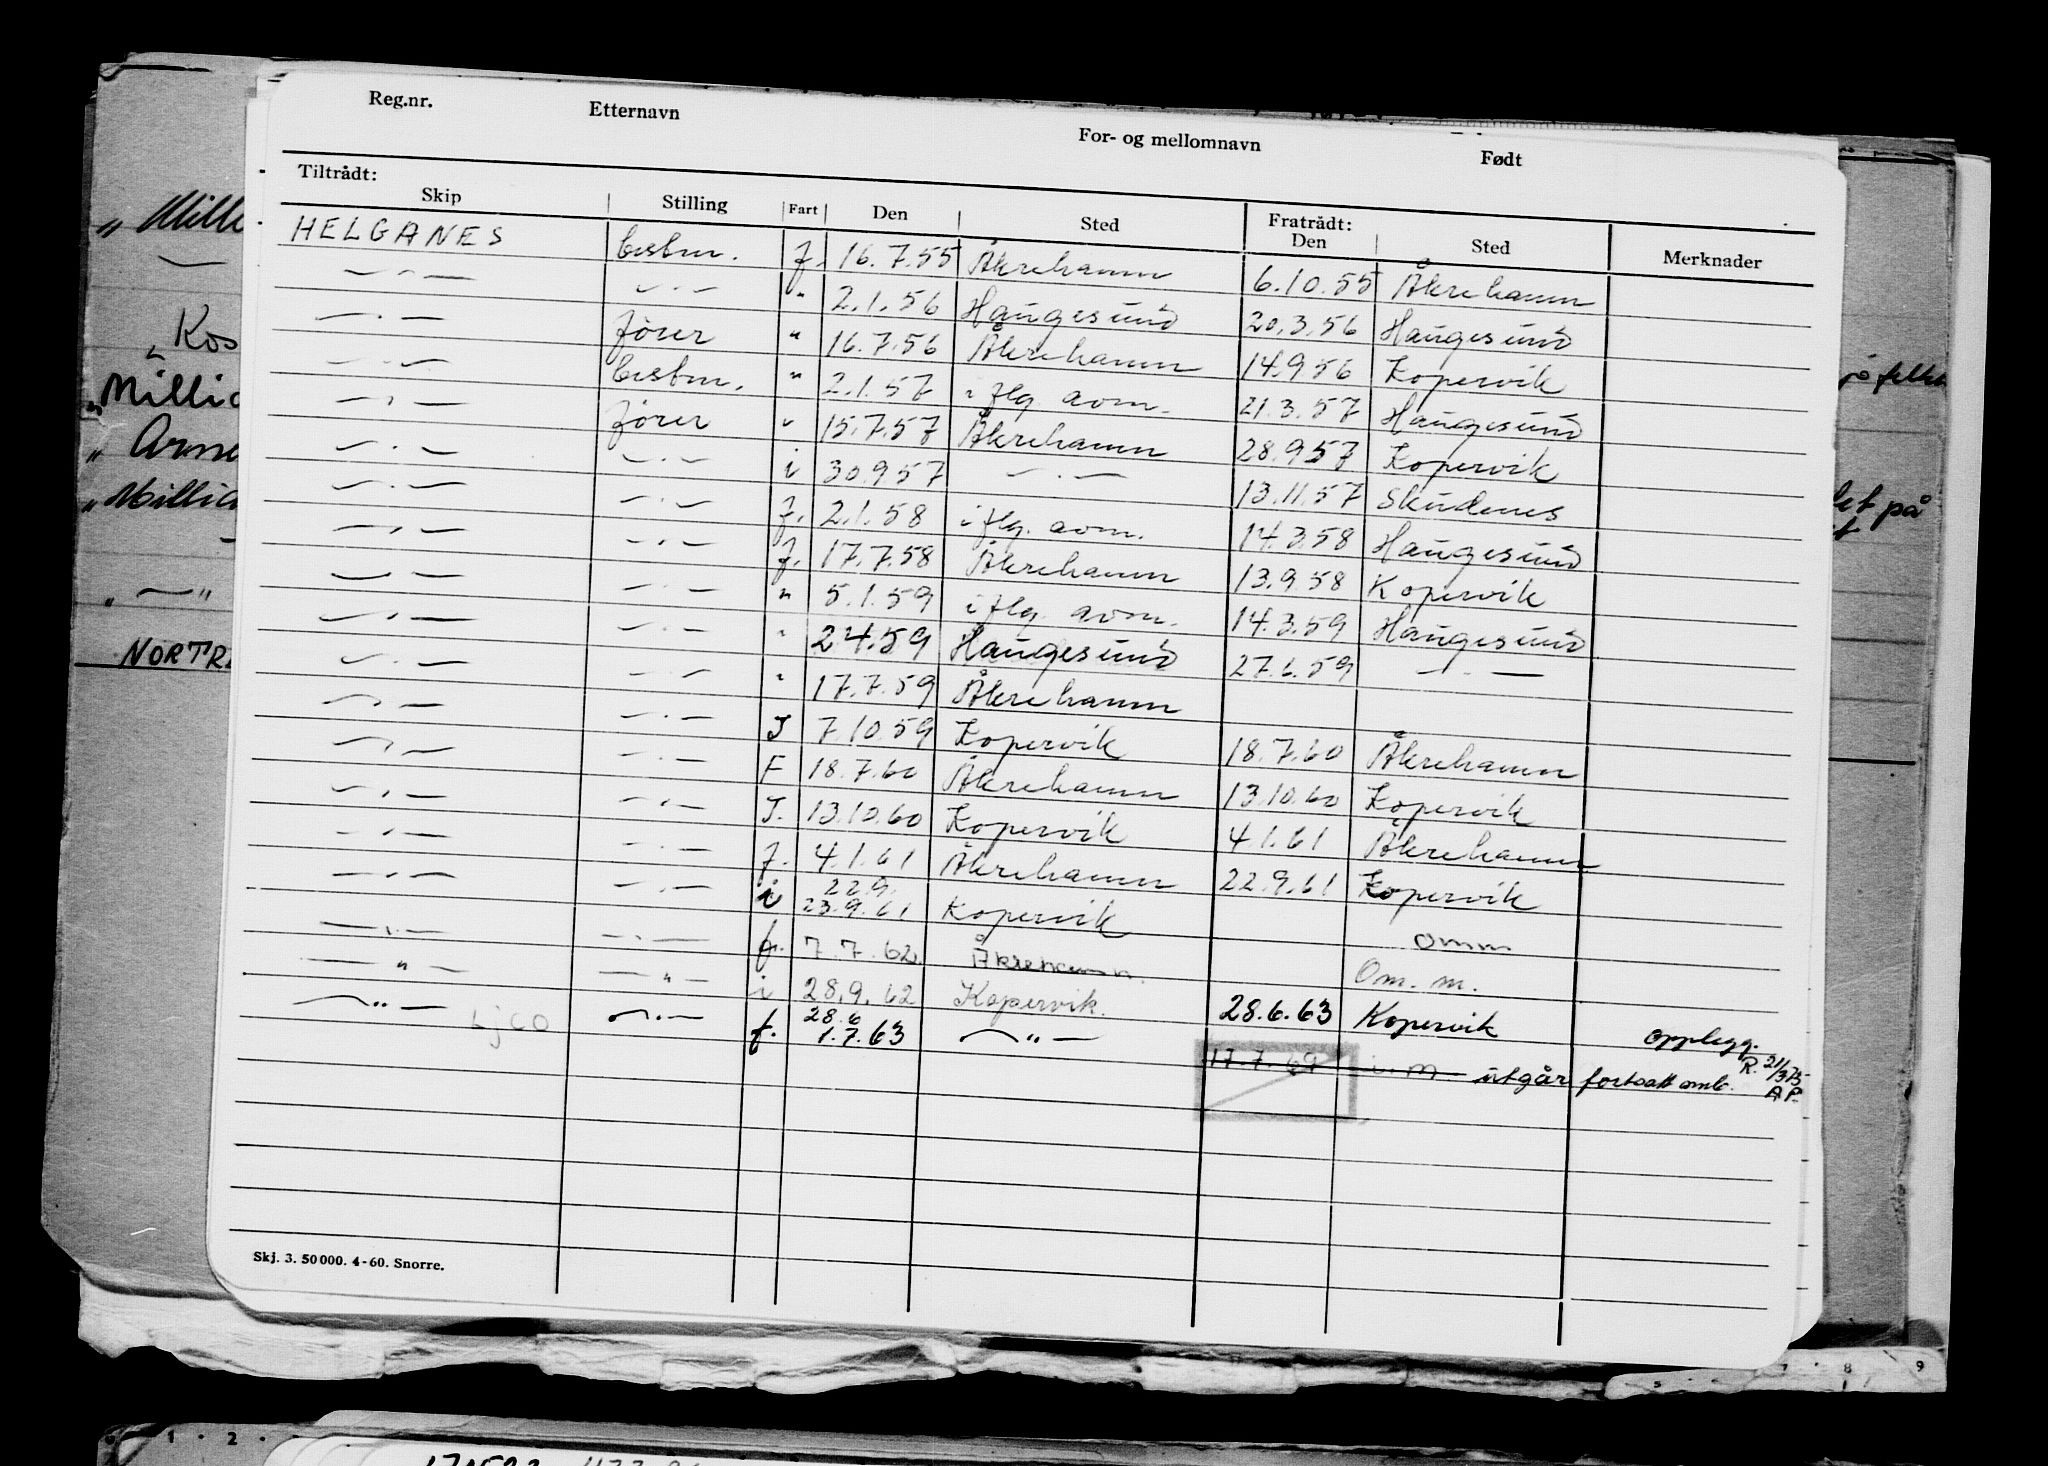 Reg.nr. Etternavn For- og mellomnavn Født
Tiltrådt: Fratrådt:
Skip Stilling Fart Den Sted Den Sted Merknader
HELGANES bestm. f. 16.7.55 Åkrehamn 6.10.55 Åkrehamn
— . — — . — " 2.1.56 Haugesund 20.3.56 Haugesund
— . — fører " 16.7.56 Åkrehamn 14.9.56 Kopervik
— . — bestm. " 2.1.57 iflg. avm. 21.3.57 Haugesund
— , — fører " 15.7.57 Åkrehamn 28.9.57 Kopervik
— . — — . — i 30.9.57 — . — 13.11.57 Skudenes
— . — — . — f. 2.1.58 iflg. avm. 14.3.58 Haugesund
— , — — . — f. 17.7.58 Åkrehamn 13.9.58 Kopervik
— . — — . — " 5.1.59 iflg. avm. 14.3.59 Haugesund
— , — — . — " 2.4.59 Haugesund 27.6.59 — . —
— . — — . — " 17.7.59 Åkrehamn
— , — — . — I 7.10.59 Kopervik 18.7.60 Åkrehamn
— , — — . — F 18.7.60 Åkrehamn 13.10.60 Kopervik
— , — — , — I. 13.10.60 Kopervik 4.1.61 Åkrehamn
— , — — . — f. 4.1.61 Åkrehamn 22.9.61 Kopervik
— , — — . — i 22.9. 23.9.61 Kopervik
— , — — . — f. 7.7.62 Åkrehamn. omm
— " — — " — i 28.9.62 Kopervik. Om. m.
— " — LJCO — . — f. 28.6 1.7.63 — " — 28.6.63 Kopervik opplegg.
17.7.69 i. m utgår fortsatt omb. R. 21/3 75 AP.
Skj. 3. 50000. 4-60. Snorre.
" Mille
" Kos
" Millic
" Arne
" Millic
NORTR
på